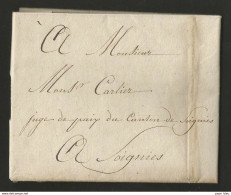 A Monsieur
Mons.r Cartier
juge de paix du Canton de Soignies
A Soignies